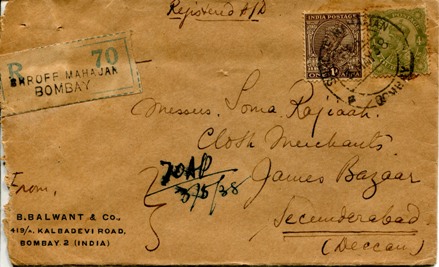 Registered A/D
R 70
SHROFF MAHAJAN
BOMBAY
INDIA POSTAGE
ONE ANNA
Messrs. Soma Rajaiah
Cloth Merchants
James Bazaar
Secunderabad
(Deccan)
3/5/38
From,
B. BALWANT & Co.,
419/A. KALBADEVI ROAD,
BOMBAY. 2 (INDIA)